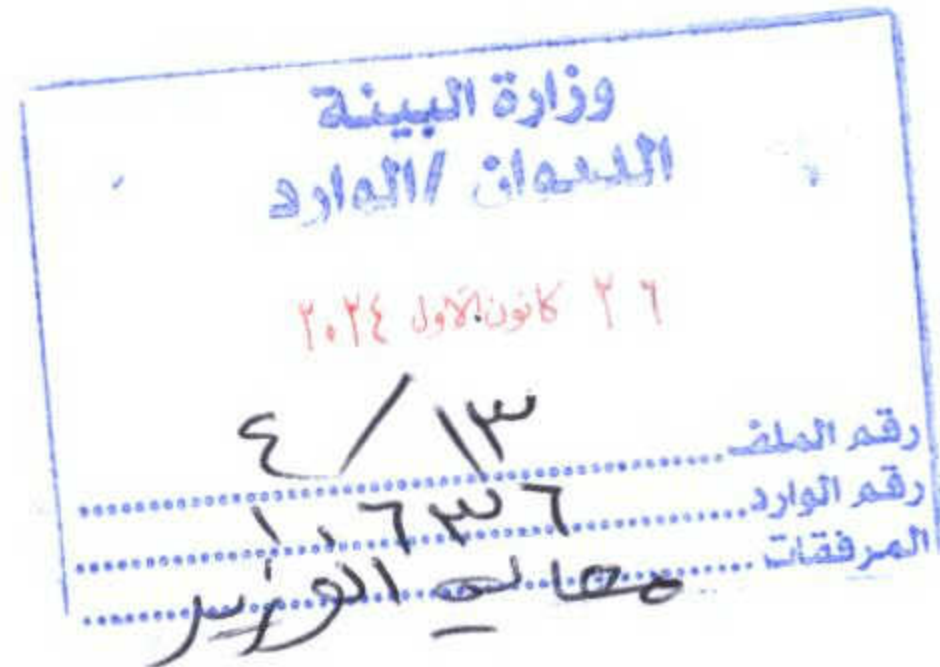 وزارة البيئة
الديوان / الوارد
٢٦ كانون الأول ٢٠٢٤
رقم الملف ٤/١٣
رقم الوارد ١٠٦٣٦
المرفقات معالي الوزير